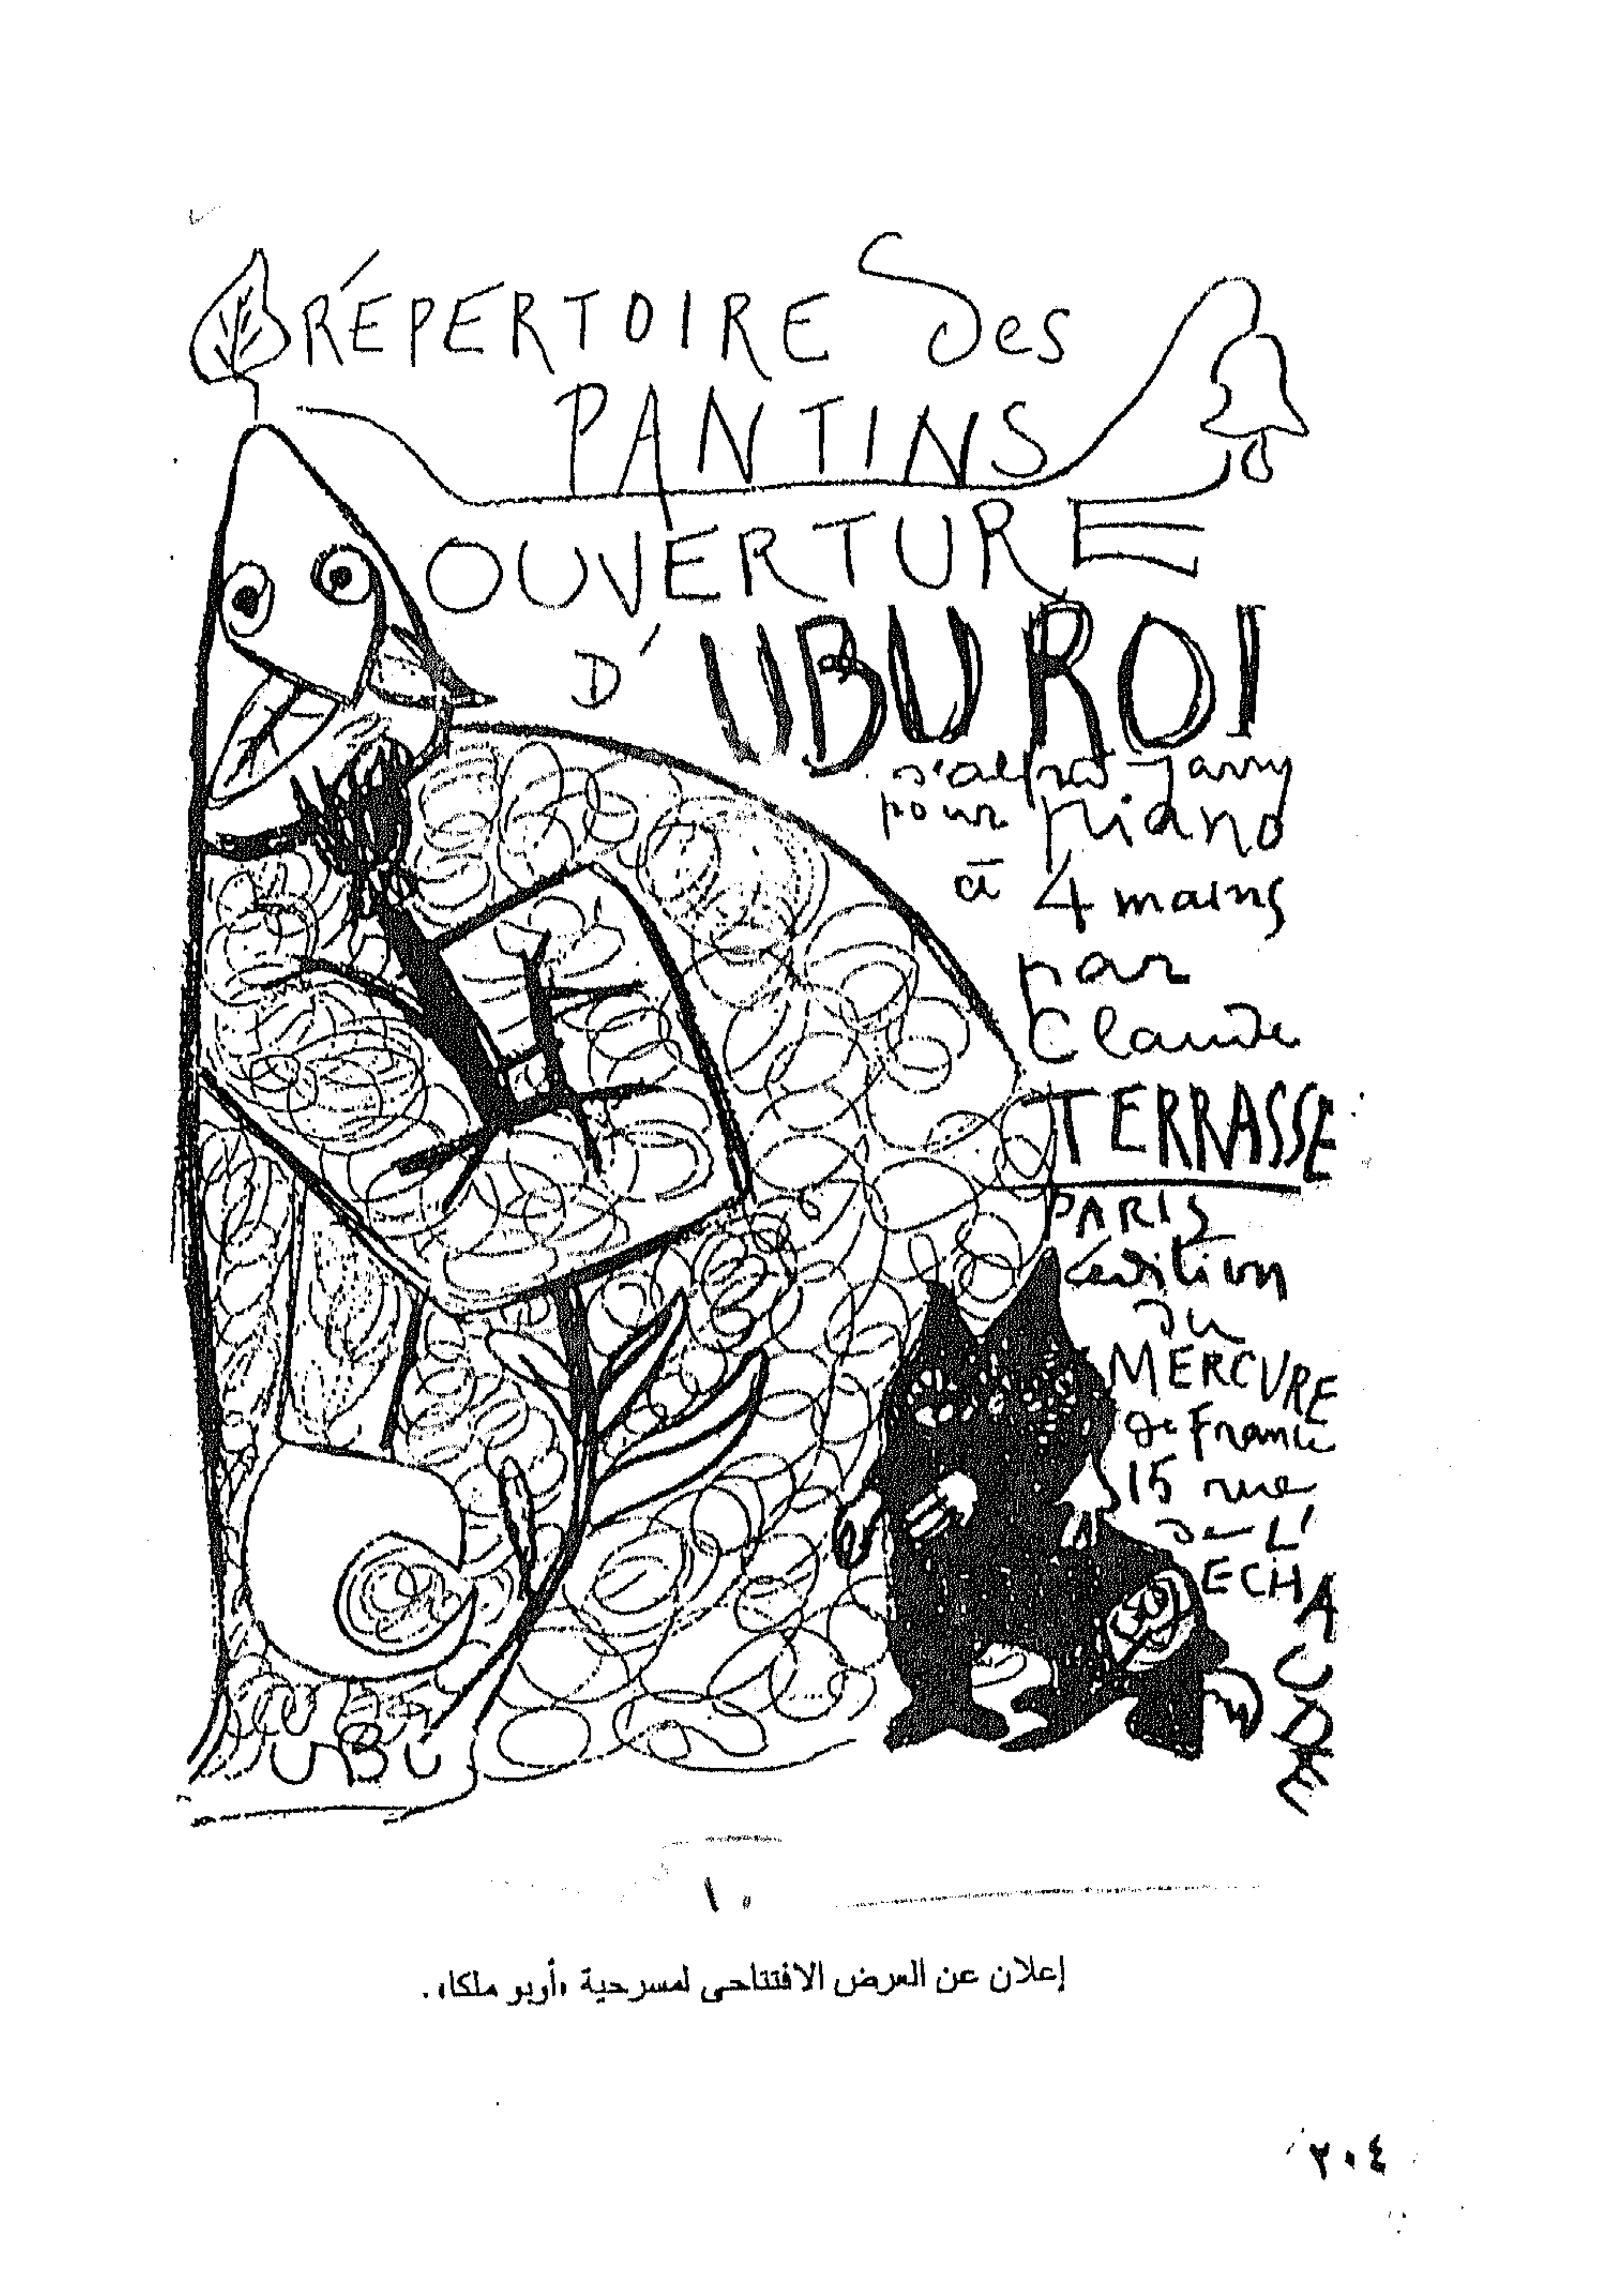 RÉPERTOIRE des
PANTINS
OUVERTURE
D'UBU ROI
d'alfred Jarry
pour piano
à 4 mains
par
Claude
TERRASSE
PARIS
édition
du
MERCVRE
de France
15 rue
de L'
ECHAUDE
UBU
١٠
إعلان عن العرض الافتتاحى لمسرحية «أوبو ملكا».
٢٠٤